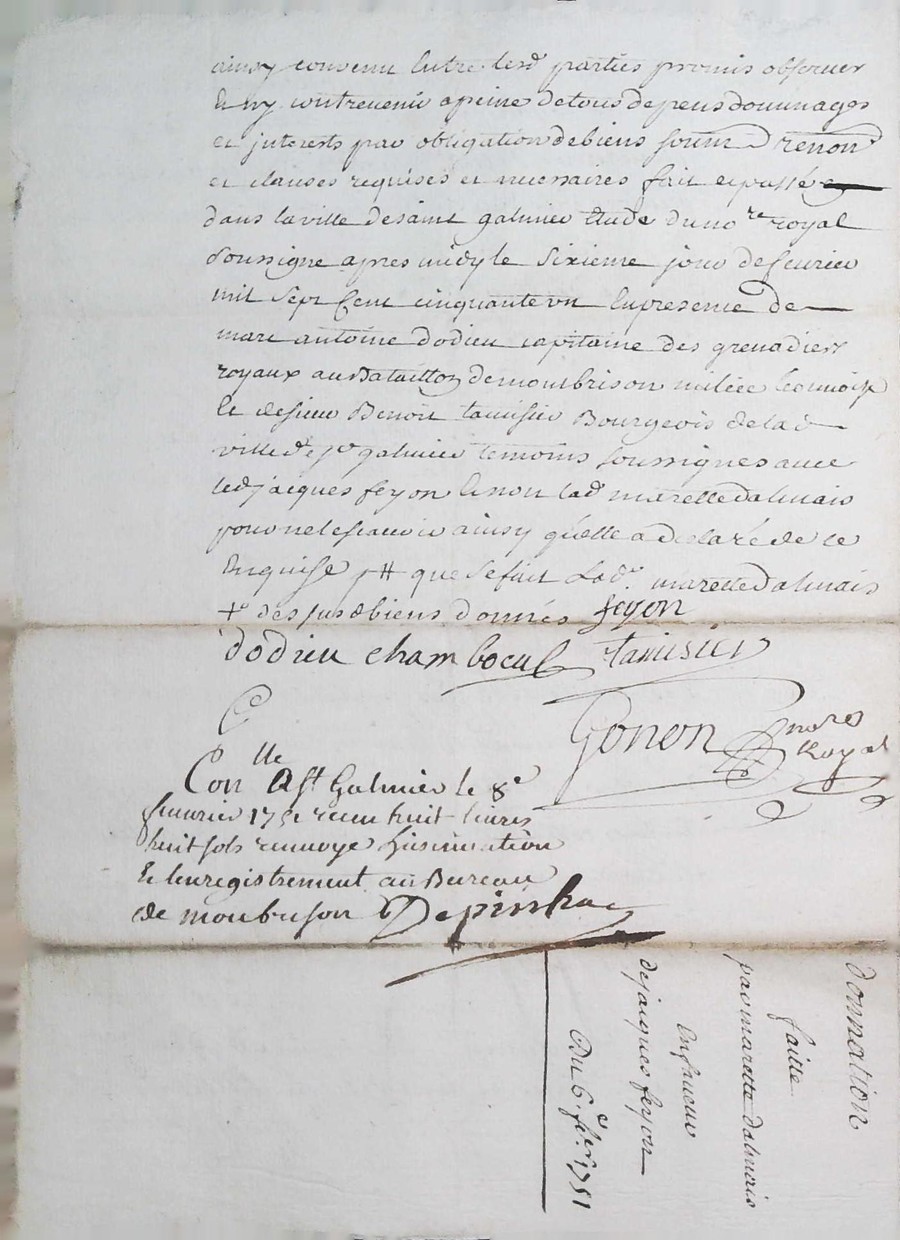 ainsy convenu Entre lesd parties promis observer
Et ny contrevenir a peine de tous depens dommages
et jnterests par obligation de biens soum renon
et clauses requises et necessaires fait et passé
dans la ville de saint galmier Etude du no.re royal
soussigne apres midy le sixieme jour de feurier
mil sept Cent cinquante vn En presence de
marc antoine dodieu capitaine des grenadiers
royaux au Bataillon de montbrison milice
Et de sieur Benoit tamisier Bourgeois de lad
ville de st galmier temoins soussignes avec
led jacques feyon Et non lad marette dalmais
pour ne le scavoir ainsy qu'elle a declaré de ce
Enquise que se fait Lad.e marette dalmais
des susd biens donnés feyon
dodieu chamboeuf tamisier
Gonon no.re Royal
Con.lle A St Galmier le 8.e
feurier 1751 receu huit livres
huit sols renvoye L'jnsinuation
Et Lenregistrement au Bureau
de montbrison Depinhac
donnation
faitte
par marette dalmais
En faueur
de jacques feyon
Du 6.e fe.er 1751